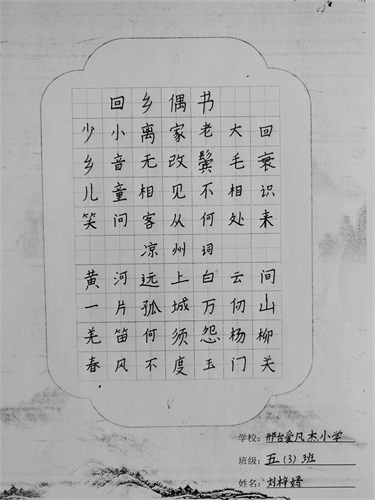 回乡偶书
少小离家老大回
乡音无改鬓毛衰
儿童相见不相识
笑问客从何处来
凉州词
黄河远上白云间
一片孤城万仞山
羌笛何须怨杨柳
春风不度玉门关
学校：邢台爱凡杰小学
班级：五（3）班
姓名：刘梓婷